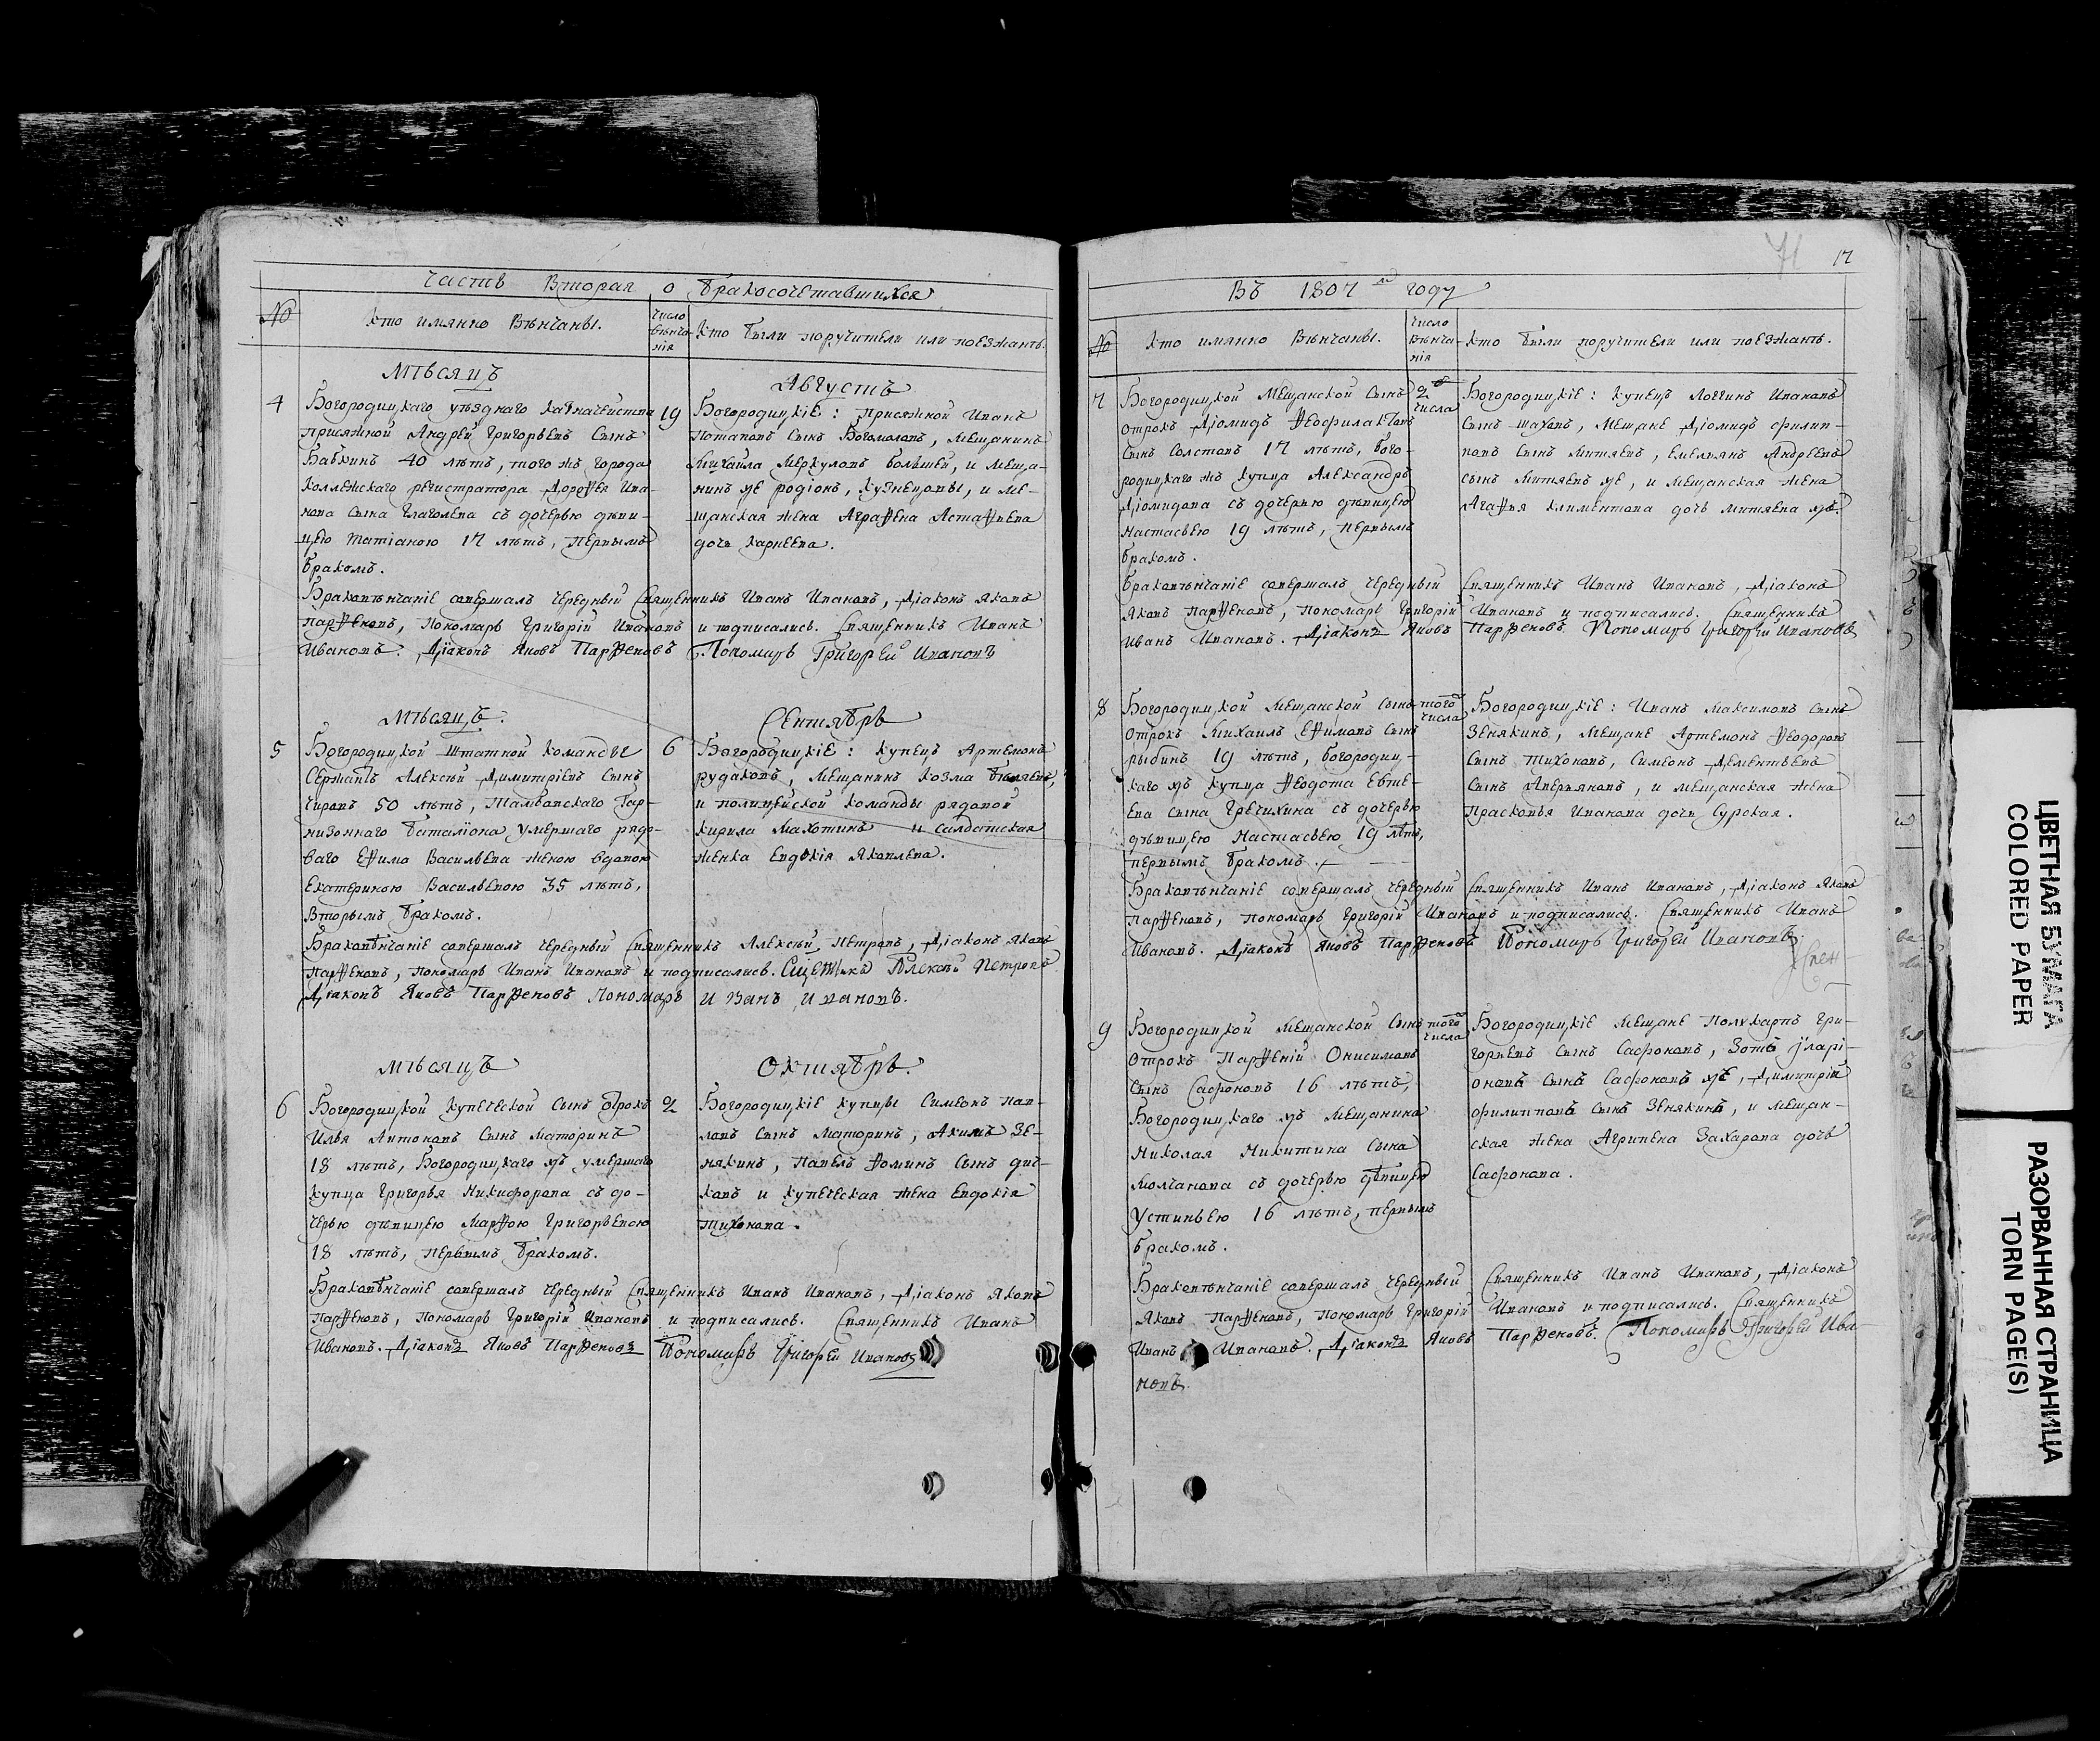 Часть Вторая о бракосочетавшихся
№
Кто имянно Вѣнчаны.
число вѣнча-
нія
Кто были поручители или поезжанѣ.
Мѣсяцъ
Августъ
4
Богородицкаго уѣзднаго казначейства
присяжной Андрей Григорьевъ сынъ
Бабкинъ 40 лѣтъ, того жъ города
коллежскаго регистратора Дорофея Ива-
нова сына Глаголева съ дочерью дѣви-
цею Татіаною 17 лѣтъ, первымъ
бракомъ.
19
Богородицкіе: присяжной Иванъ
Потаповъ сынъ Богомоловъ, мещанинъ
Михайла Меркуловъ большей, и меща-
нинъ же родіонъ, Кузнецовы, и ме-
щанская жена Аграфена Астафьева
дочь Карнеева.
Браковѣнчаніе совершалъ чередный Священникъ Иванъ Ивановъ, Діаконъ Яковъ
Парфеновъ, пономарь Григорій Ивановъ и подписались. Священникъ Иванъ
Ивановъ. Діаконъ Яковъ Парфеновъ Пономарь Григорей Ивановъ
Мѣсяцъ.
Сентябрь
5
Богородицкой штатной команды
Сержантъ Алексѣй Димитріевъ сынъ
Чировъ 50 лѣтъ, Тамбовскаго Гар-
низоннаго баталіона умершаго рядо-
ваго Ефима Васильева женою вдовою
Екатериною Васильевою 35 лѣтъ,
вторымъ бракомъ.
6
Богородицкіе: купецъ Артемонъ
рудаковъ, мещанинъ Козма Беляевъ,
и полицейской команды рядовой
Кирила Махотинъ и салдатская
женка Евдокія Яковлева.
Браковѣнчаніе совершалъ чередный Священникъ Алексѣй Петровъ, Діаконъ Яковъ
Парфеновъ, пономарь Иванъ Ивановъ и подписались. Алексѣй Петровъ
Діаконъ Яковъ Парфеновъ Пономарь Иванъ Ивановъ.
Мѣсяцъ
Октябрь.
6
Богородицкой купеческой сынъ отрокъ
Илья Антоновъ сынъ Маторинъ
18 лѣтъ, Богородицкаго жъ умершаго
купца Григорья Никифорова съ до-
черью дѣвицею Марфою Григорьевою
18 лѣтъ, первымъ бракомъ.
2
Богородицкіе купцы Симеонъ Пав-
ловъ сынъ Маторинъ, Акимъ Зе-
някинъ, Павелъ Фоминъ сынъ дич-
ковъ и купеческая жена Евдокія
Тихонова.
Браковѣнчаніе совершалъ чередный Священникъ Иванъ Ивановъ, Діаконъ Яковъ
Парфеновъ, пономарь Григорій Ивановъ и подписались. Священникъ Иванъ
Ивановъ. Діаконъ Яковъ Парфеновъ Пономарь Григорей Ивановъ
71
17
Въ 1807 м годy
№
Кто имянно Вѣнчаны.
число
вѣнча-
нія
Кто были поручители или поезжанѣ.
7
Богородицкой мещанской сынъ
отрокъ Діомидъ Феофилактовъ
сынъ Солстовъ 17 лѣтъ, Бого-
родицкаго жъ купца Александра
Діомидова съ дочерью дѣвицею
Настасьею 19 лѣтъ, первымъ
бракомъ.
2
числа
Богородицкіе: купецъ Логгинъ Ивановъ
сынъ шаховъ, мещане Діомидъ филип-
повъ сынъ Митяевъ, Емельянъ Андреевъ
сынъ Митяевъ же, и мещанская жена
Агафья Климентова дочь Митяева жъ.
Браковѣнчаніе совершалъ чередный Священникъ Иванъ Ивановъ, Діаконъ
Яковъ Парфеновъ, пономарь Григорій Ивановъ и подписались. Священникъ
Иванъ Ивановъ. Діаконъ Яковъ Парфеновъ Пономарь Григорей Ивановъ
8
Богородицкой мещанской сынъ
отрокъ Михаилъ Ефимовъ сынъ
рыбинъ 19 лѣтъ, богородиц-
каго жъ купца Феодота Евте-
ева сына Гречихина съ дочерью
дѣвицею Настасьею 19 лѣтъ,
первымъ бракомъ.
того
числа
Богородицкіе: Иванъ Максимовъ сынъ
Зенякинъ, мещане Артемонъ Феодоровъ
сынъ Тихоновъ, Симеонъ Дементьевъ
сынъ Аверьяновъ, и мещанская жена
Прасковья Иванова дочь Сурская.
Браковѣнчаніе совершалъ чередный Священникъ Иванъ Ивановъ, Діаконъ Яковъ
Парфеновъ, пономарь Григорій Ивановъ и подписались. Священникъ Иванъ
Ивановъ. Діаконъ Яковъ Парфеновъ Пономарь Григорей Ивановъ
9
Богородицкой мещанской сынъ
отрокъ Парфеній Онисимовъ
сынъ Сафоновъ 16 лѣтъ,
Богородицкаго жъ мещанина
Николая Никитина сына
Молчанова съ дочерью дѣвицею
Устиньею 16 лѣтъ, первымъ
бракомъ.
того
числа
Богородицкіе мещане Поликарпъ Гри-
горьевъ сынъ Сафоновъ, Зотъ Іларі-
оновъ сынъ Сафоновъ же, Димитрій
филипповъ сынъ Зенякинъ, и мещан-
ская жена Агрипена Захарова дочь
Сафонова.
Браковѣнчаніе совершалъ чередный Священникъ Иванъ Ивановъ, Діаконъ
Яковъ Парфеновъ, пономарь Григорій Ивановъ и подписались. Священникъ
Иванъ Ивановъ. Діаконъ Яковъ Парфеновъ. Пономарь Григорей Ива-
новъ.
ЦВЕТНАЯ БУМАГА
COLORED PAPER
РАЗОРВАННАЯ СТРАНИЦА
TORN PAGE(S)